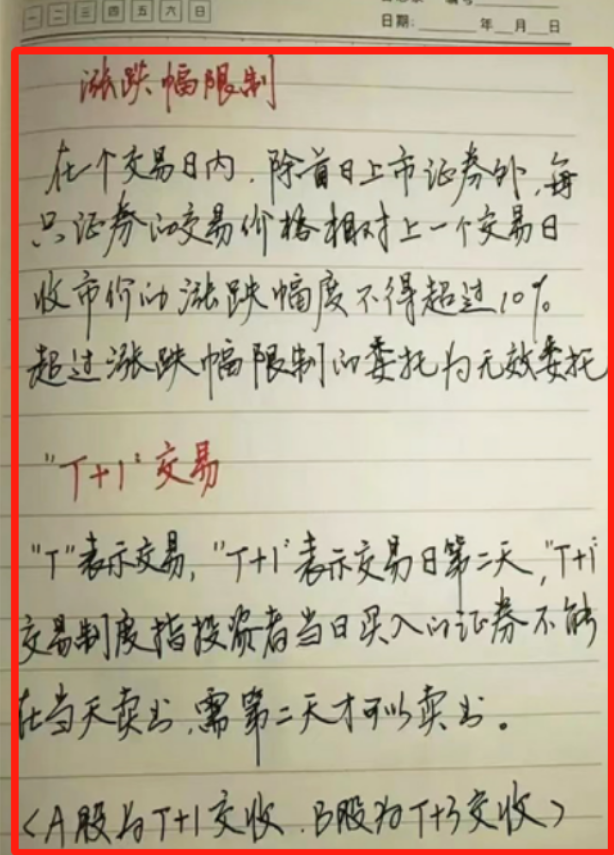 一 二 三 四 五 六 日
日期: 年 月 日
涨跌幅限制
在一个交易日内.除首日上市证券外,每
只证券的交易价格相对上一个交易日
收市价的涨跌幅度不得超过10%
超过涨跌幅限制的委托为无效委托
"T+1"交易
"T"表示交易,"T+1"表示交易日第二天,"T+1"
交易制度指投资者当日买入的证券不能
在当天卖出,需第二天才可以卖出。
<A股为T+1交收.B股为T+3交收>